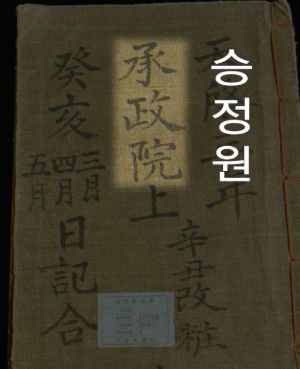 승정원
年
辛丑改粧
承政院上
癸亥
三月
四月
五月
日記合